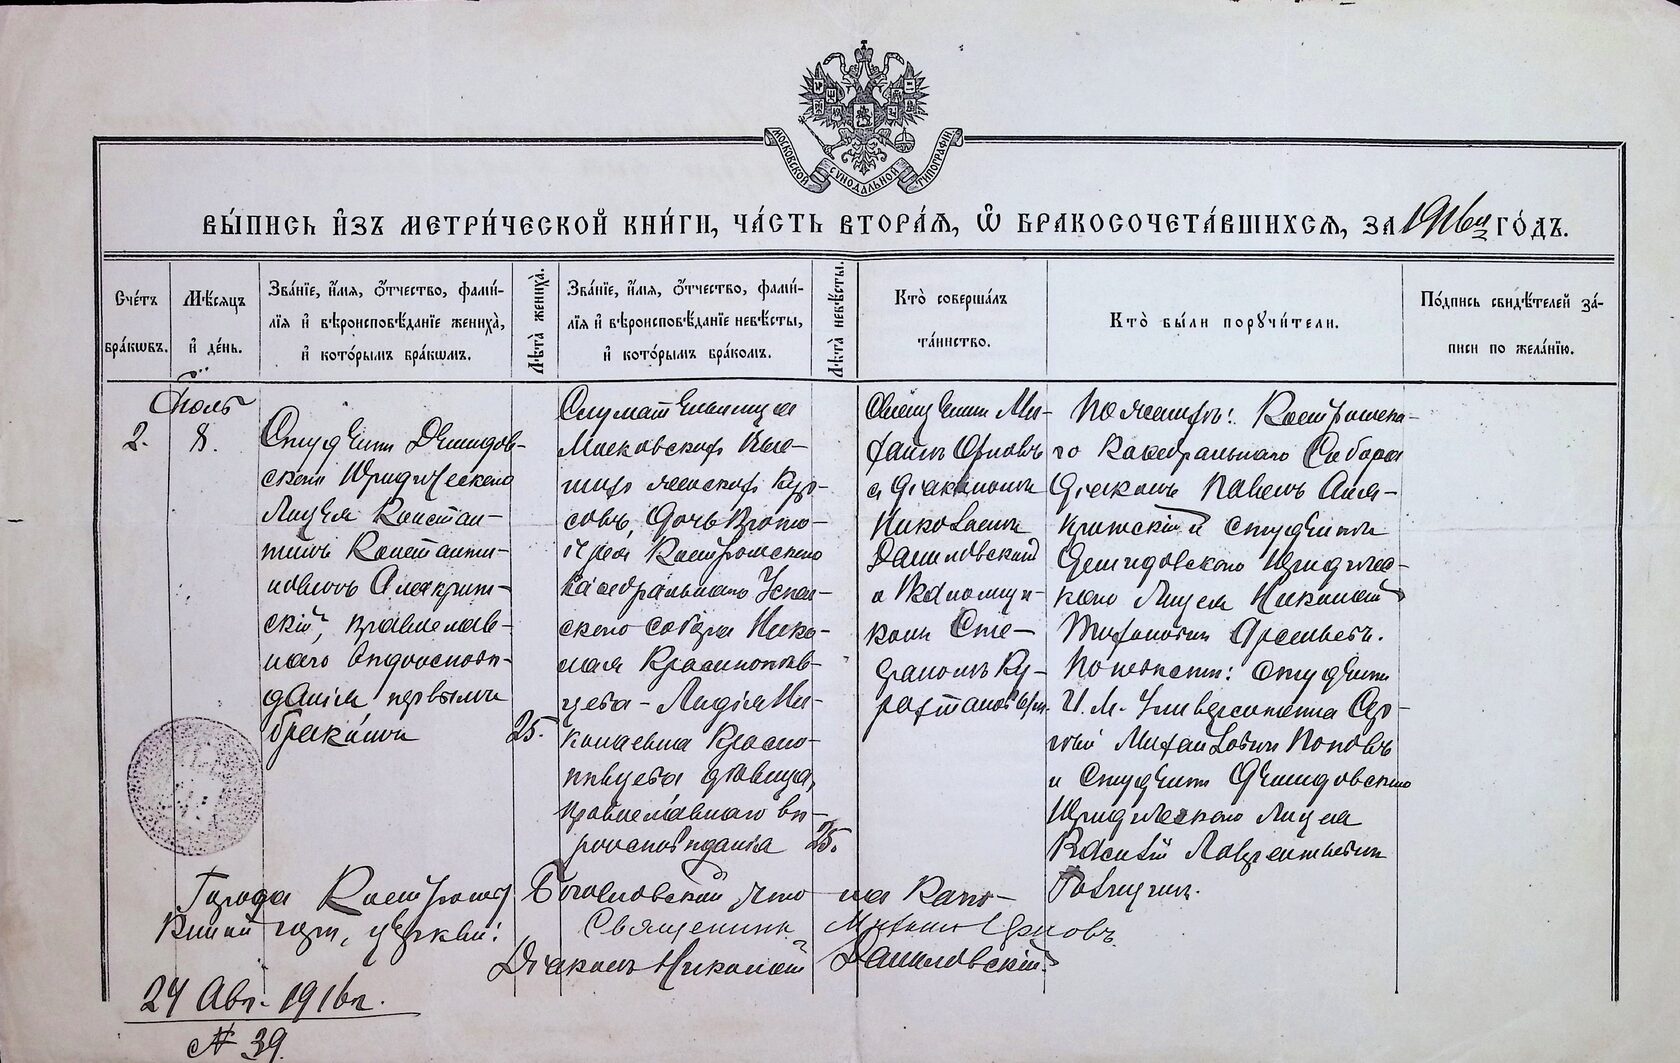 МОСКОВСКОЙ СѴНОДАЛЬНОЙ ТИПОГРАФИИ
ВЫ́ПИСЬ И҆ЗЪ МЕТРИ́ЧЕСКОЙ КНИ́ГИ, ЧА́СТЬ ВТОРА́Ѧ, Ѽ БРАКОСОЧЕТА́ВШИХСѦ, ЗА 1916й ГО́ДЪ.
Сче́тъ
бра́кѡвъ.
Мѣ́сѧцъ
и҆ де́нь.
Зва́нїе, и҆́мѧ, ѻ҆́тчество, фами́-
лїѧ и҆ вѣроисповѣ́данїе жениха̀,
и҆ кото́рымъ бра́кѡмъ.
Лѣ́та̀ жениха̀.
Зва́нїе, и҆́мѧ, ѻ҆́тчество, фами́-
лїѧ и҆ вѣроисповѣ́данїе невѣ́сты,
и҆ кото́рымъ бра́комъ.
Лѣ́та̀ невѣ́сты.
Кто̀ соверша́лъ
та́инство.
Кто̀ бы́ли порꙋчи́тели.
По́дпись свидѣ́телей за́-
писи по жела́нїю.
Іюль
2.
8.
Студентъ Демидов-
скаго Юридическаго
Лицея Констан-
тинъ Константи-
новичъ Алякрит-
скій, православ-
наго вѣроисповѣ-
данія первымъ
бракомъ
25.
Слушательница
Московскихъ Выс-
шихъ женскихъ Кур-
совъ, дочь Прото-
іерея Костромского
Каѳедральнаго Успен-
скаго собора Нико-
лая Краснопѣв-
цева - Лидія Ни-
колаевна Красно-
пѣвцева дѣвица,
православнаго вѣ-
роисповѣданія
25.
Священникъ Ми-
хаилъ Орловъ
съ діакономъ
Николаемъ
Даниловскимъ
и псаломщи-
комъ Сте-
фаномъ
По женихѣ: Костромска-
го Каѳедральнаго Собора
Діаконъ Павелъ Аля-
критскій и студентъ
Демидовскаго Юридичес-
каго Лицея Николай
Арсеньевъ.
По невѣстѣ: студентъ
И. М. Университета Сер-
гѣй Михайловичъ Поповъ
и студентъ Демидовскаго
Юридическаго Лицея
Василій Лаврентьевичъ
Города Костромы Богословской что на Като-
церкви:
Священникъ Михаилъ Орловъ
Діаконъ Николай Даниловскій.
24 Авг. 1916г.
№ 39.